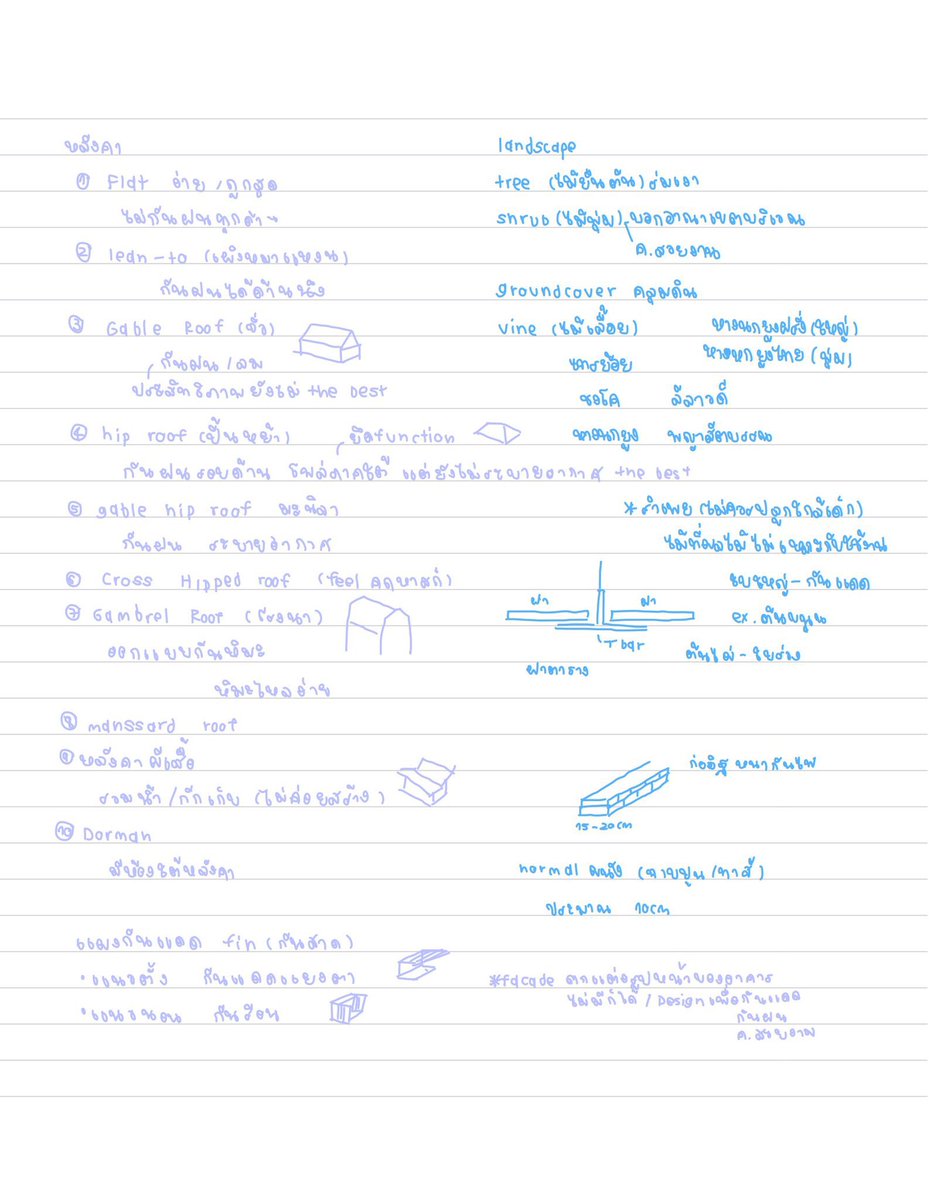 หลังคา
① Flat ง่าย/ถูกสุด
ไม่กันฝนทุกด้าน
② lean-to (เพิงหมาแหงน)
กันฝนได้ด้านนึง
③ Gable Roof (จั่ว)
กันฝน/ลม
ประสิทธิภาพยังไม่ the best
④ hip roof (ปั้นหยา) ยึดfunction
กันฝนรอบด้าน แต่ยังไม่ระบายอากาศ the best
⑤ gable hip roof มะนิลา
กันฝน ระบายอากาศ
⑥ Cross Hipped roof (feel คฤหาสถ์)
⑦ Gambrel Roof (โรงนา)
ออกแบบกันหิมะ
หิมะไหลง่าย
⑧ manssard roof
⑨ หลังคาผีเสื้อ
รวมน้ำ/กักเก็บ (ไม่ค่อยสร้าง)
⑩ Dorman
มีห้องใต้หลังคา
แผงกันแดด fin (กันสาด)
•แนวตั้ง กันแดดแยงตา
•แนวนอน กันร้อน
landscape
tree (ไม้ยืนต้น) ร่มเงา
shrub (ไม้พุ่ม) บอกอาณาเขตบริเวณ
ค.สวยงาม
groundcover คลุมดิน
vine (ไม้เลื้อย) หางนกยูงฝรั่ง (ใหญ่)
หางนกยูงไทย (พุ่ม)
ไทรย้อย
ชงโค ลีลาวดี
หางนกยูง พญาสัตบรรณ
*รำเพย (ไม่ควรปลูกใกล้เด็ก)
ใบใหญ่-กันแดด
ฝ้า ฝ้า
T bar
ฝ้าตาราง
ต้นไผ่-ใบร่วง
ก่ออิฐ หนากันไฟ
15-20cm
normal ผนัง (ฉาบปูน/ทาสี)
ประมาณ 10cm
*facade ตกแต่งรูปหน้าของอาคาร
ไม่มีก็ได้/Design เพื่อกันแดด
กันฝน
ค.สวยงาม